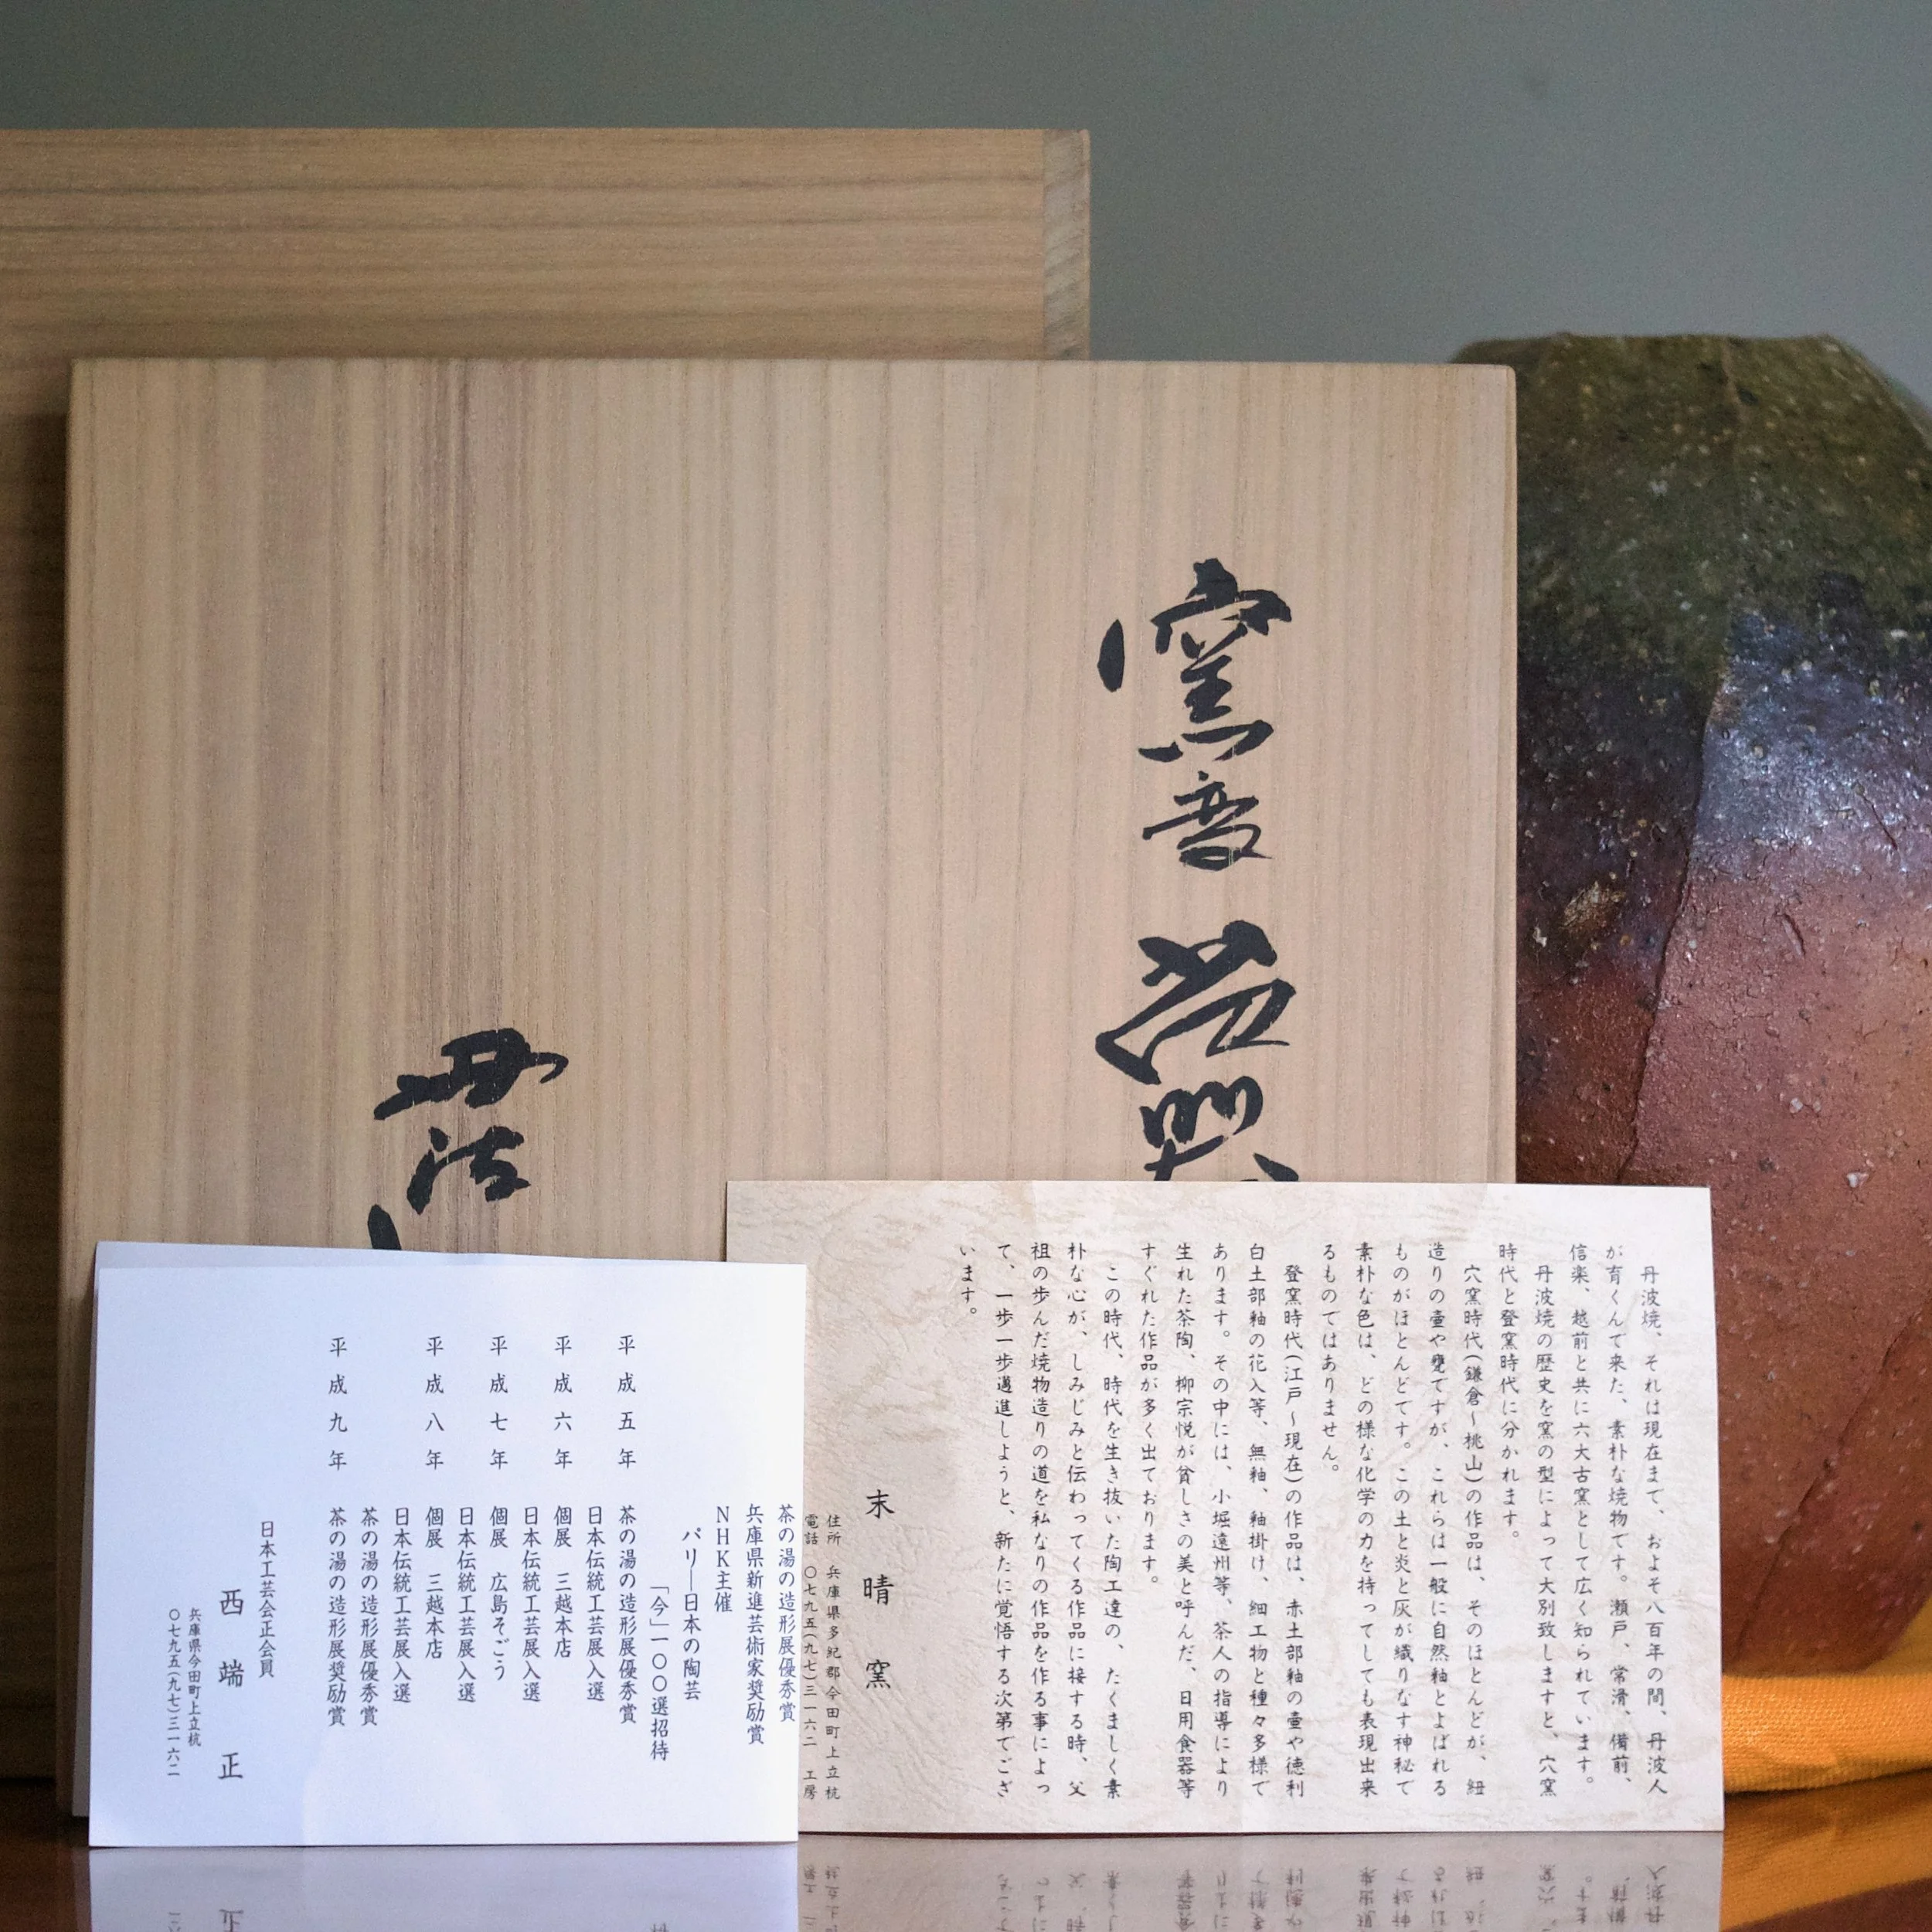 窯変 花器
丹波
丹波焼、それは現在まで、およそ八百年の間、丹波人
が育くんで来た、素朴な焼物です。瀬戸、常滑、備前、
信楽、越前と共に六大古窯として広く知られています。
丹波焼の歴史を窯の型によって大別致しますと、穴窯
時代と登窯時代に分かれます。
穴窯時代(鎌倉～桃山)の作品は、そのほとんどが、紐
造りの壷や甕てすが、これらは一般に自然釉とよばれる
ものがほとんどです。この土と炎と灰が織りなす神秘で
素朴な色は、どの様な化学の力を持ってしても表現出来
るものてはありません。
登窯時代(江戸～現在)の作品は、赤土部釉の壷や徳利
白土部釉の花入等、無釉、釉掛け、細工物と種々多様で
あります。その中には、小堀遠州等、茶人の指導により
生れた茶陶、柳宗悦が貧しさの美と呼んだ、日用食器等
すぐれた作品が多く出ております。
この時代、時代を生き抜いた陶工達の、たくましく素
朴な心が、しみじみと伝わってくる作品に接する時、父
祖の歩んだ焼物造りの道を私なりの作品を作る事によっ
て、一歩一歩邁進しようと、新たに覚悟する次第でござ
います。
末晴窯
住所 兵庫県多紀郡今田町上立杭
電話 〇七九五(九七)三一六二 工房
茶の湯の造形展優秀賞
兵庫県新進芸術家奨励賞
NHK主催
パリ―日本の陶芸
「今」一〇〇選招待
平成五年 茶の湯の造形展優秀賞
日本伝統工芸展入選
平成六年 個展 三越本店
日本伝統工芸展入選
平成七年 個展 広島そごう
日本伝統工芸展入選
平成八年 個展 三越本店
日本伝統工芸展入選
茶の湯の造形展優秀賞
平成九年 茶の湯の造形展奨励賞
日本工芸会正会員
西端正
兵庫県今田町上立杭
〇七九五(九七)三一六二